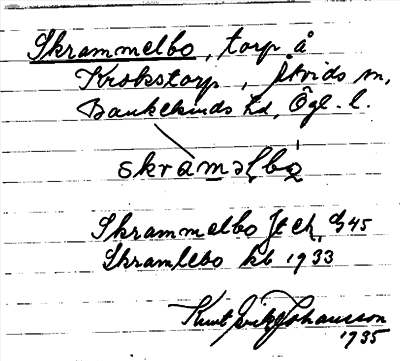 Skrammelbo, torp å
Krokstorp, Åtvids sn,
Bankekinds hd, Ögl. l.
skràmǝḷbó̜
Skrammelbo Jt ek, G45
Skramlebo kb 1933
Knut Erik Johansson
1935